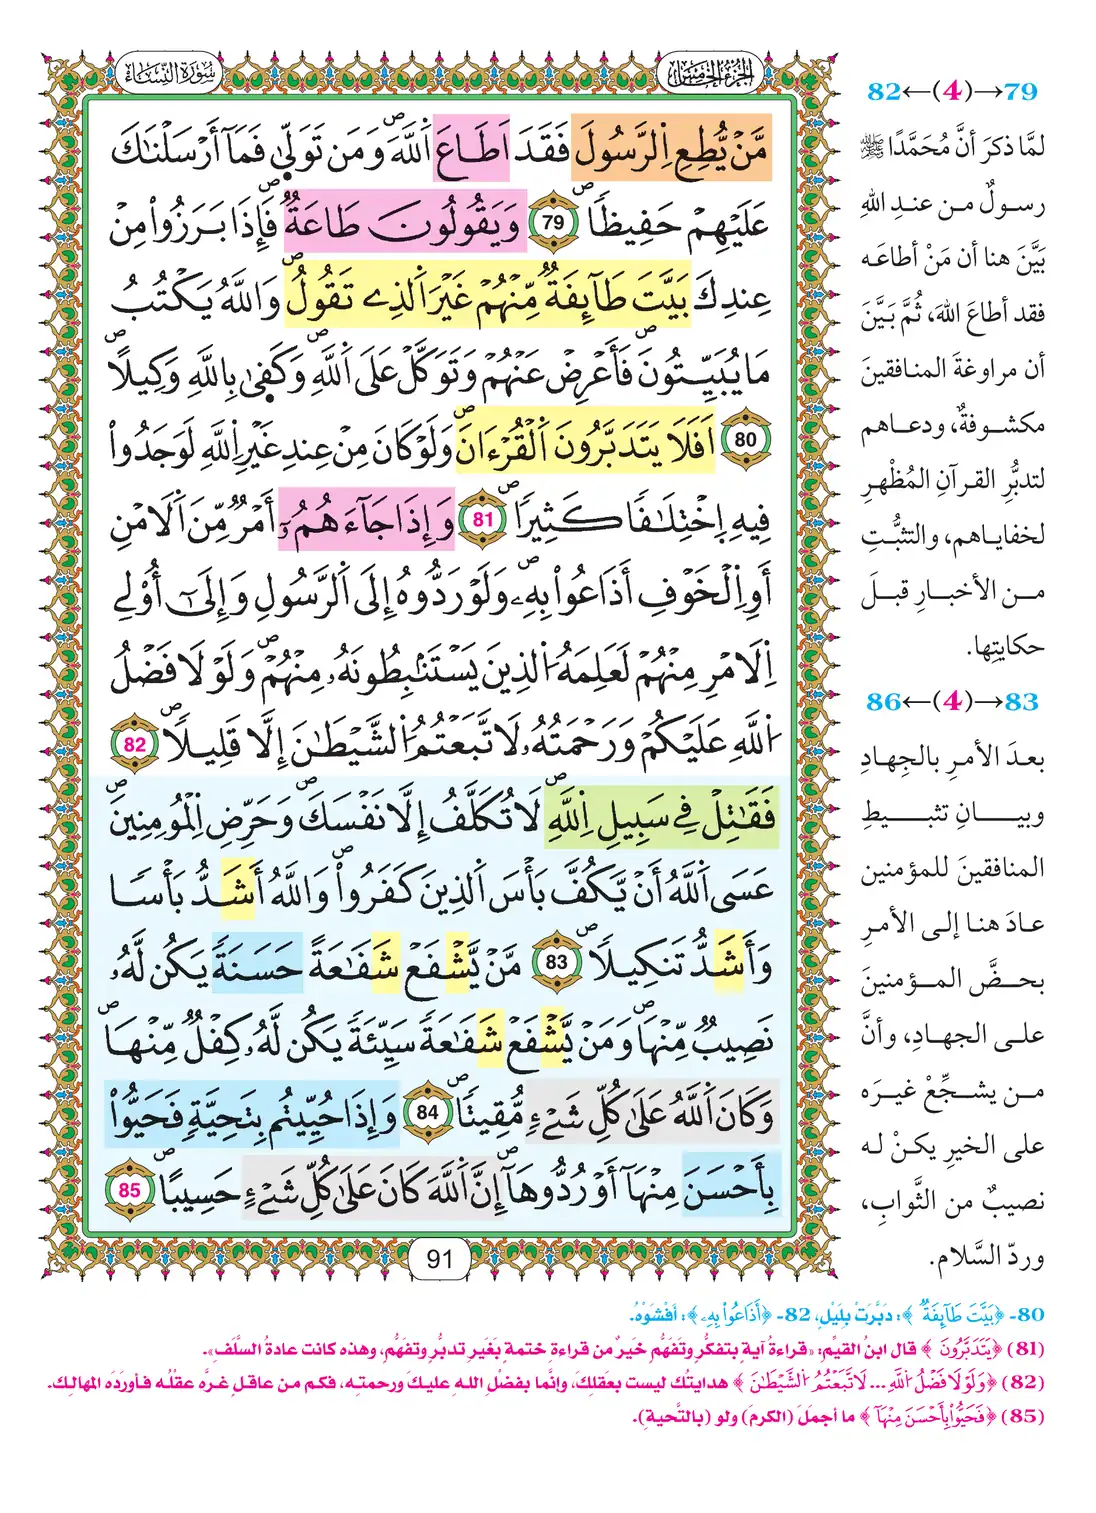 الجزء الخامس
سورة النساء
مَّنْ يُّطِعِ اِ۬لرَّسُولَ فَقَدَ اَطَاعَ اَ۬للَّهَۖ وَمَن تَوَلّ۪ىٰ فَمَآ أَرْسَلْنَٰكَ
عَلَيْهِمْ حَفِيظًاۖ 79 وَيَقُولُونَ طَاعَةٌۖ فَإِذَا بَرَزُواْ مِنْ
عِندِكَ بَيَّتَ طَآئِفَةٌ مِّنْهُمْ غَيْرَ اَ۬لذِے تَقُولُۖ وَاللَّهُ يَكْتُبُ
مَا يُبَيِّتُونَۖ فَأَعْرِضْ عَنْهُمْ وَتَوَكَّلْ عَلَى اَ۬للَّهِۖ وَكَف۪ىٰ بِاللَّهِ وَكِيلًاۖ
80 اَفَلَا يَتَدَبَّرُونَ اَ۬لْقُرْءَانَۖ وَلَوْ كَانَ مِنْ عِندِ غَيْرِ اِ۬للَّهِ لَوَجَدُواْ
فِيهِ اِ۪خْتِلَٰفًا كَثِيرًاۖ 81 وَإِذَا جَآءَهُمُۥٓ أَمْرٌ مِّنَ اَ۬لَامْنِ
أَوِ اِ۬لْخَوْفِ أَذَاعُواْ بِهِۦۖ وَلَوْ رَدُّوهُ إِلَى اَ۬لرَّسُولِ وَإِلَىٰٓ أُوْلِے
اِ۬لَامْرِ مِنْهُمْ لَعَلِمَهُ اُ۬لذِينَ يَسْتَنۢبِطُونَهُۥ مِنْهُمْۖ وَلَوْلَا فَضْلُ
اُ۬للَّهِ عَلَيْكُمْ وَرَحْمَتُهُۥ لَاتَّبَعْتُمُ اُ۬لشَّيْطَٰنَ إِلَّا قَلِيلًاۖ 82
فَقَٰتِلْ فِے سَبِيلِ اِ۬للَّهِ لَا تُكَلَّفُ إِلَّا نَفْسَكَۖ وَحَرِّضِ اِ۬لْمُومِنِينَۖ
عَسَى اَ۬للَّهُ أَنْ يَّكُفَّ بَأْسَ اَ۬لذِينَ كَفَرُواْۖ وَاللَّهُ أَشَدُّ بَأْسًا
وَأَشَدُّ تَنكِيلًاۖ 83 مَّنْ يَّشْفَعْ شَفَٰعَةً حَسَنَةً يَكُن لَّهُۥ
نَصِيبٌ مِّنْهَاۖ وَمَنْ يَّشْفَعْ شَفَٰعَةً سَيِّئَةً يَكُن لَّهُۥ كِفْلٌ مِّنْهَاۖ
وَكَانَ اَ۬للَّهُ عَلَىٰ كُلِّ شَےْءٍ مُّقِيتًاۖ 84 وَإِذَا حُيِّيتُم بِتَحِيَّةٍ فَحَيُّواْ
بِأَحْسَنَ مِنْهَآ أَوْ رُدُّوهَآۖ إِنَّ اَ۬للَّهَ كَانَ عَلَىٰ كُلِّ شَےْءٍ حَسِيبًاۖ 85
91
79→(4)←82
لمَّا ذكرَ أنَّ مُحَمَّدًا ﷺ
رسولٌ من عندِ اللهِ
بَيَّنَ هنا أن مَنْ أطاعَه
فقد أطاعَ اللهَ، ثُمَّ بَيَّنَ
أن مراوغةَ المنافقينَ
مكشوفةٌ، ودعاهم
لتدبُّرِ القرآنِ المُظْهِرِ
لخفاياهم، والتثبُّتِ
من الأخبارِ قبلَ
حكايتِها.
83→(4)←86
بعدَ الأمرِ بالجِهادِ
وبيانِ تثبيطِ
المنافقينَ للمؤمنين
عادَ هنا إلى الأمرِ
بحضَّ المؤمنينَ
على الجهادِ، وأنَّ
من يشجِّعْ غيرَه
على الخيرِ يكنْ له
نصيبٌ من الثَّوابِ،
وردّ السَّلام.
80- ﴿بَيَّتَ طَآئِفَةٌ﴾: دبَّرَتْ بِلَيْلٍ، 82- ﴿أَذَاعُواْ بِهِۦ﴾: أفْشَوْهُ.
(81) ﴿يَتَدَبَّرُونَ﴾ قال ابنُ القيِّم: «قراءةُ آيةٍ بتفكُّرٍ وتَفَهُّمٍ خَيرٌ من قراءةِ ختمةٍ بغَيرِ تدبُّرٍ وتفهُّمٍ، وهذه كانت عادةُ السَّلَفِ».
(82) ﴿وَلَوْلَا فَضْلُ اُ۬للَّهِ ... لَاتَّبَعْتُمُ اُ۬لشَّيْطَٰنَ﴾ هدايتُك ليست بعقلِكَ، وإنَّما بفضْلِ اللهِ عليكَ ورحمتِه، فكم من عاقلٍ غرَّه عقْلُه فأورَدَه المهالِكَ.
(85) ﴿فَحَيُّواْ بِأَحْسَنَ مِنْهَآ﴾ ما أجمَلَ (الكرمَ) ولو (بالتَّحية).